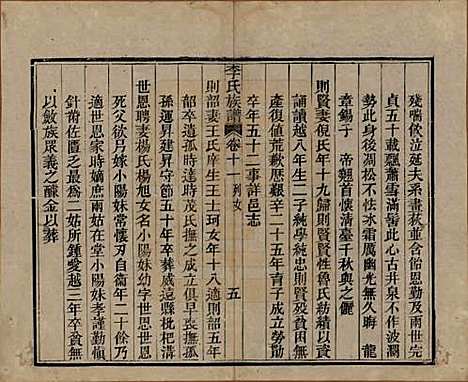 殘喘飲泣延夫系畫荻並含飴恩勤及兩世完
貞五十載飄蕭雪滿鬢此心古井泉不作波瀾
勢此身後凋松不怯冰霜厲幽光無久晦龍
章錫于帝覲首懷清臺千秋與之儷
則賢妻倪氏年十九歸則賢賢性魯氏紡績以資
誦讀越八年生二子純學純忠則賢歿貧困無
產復値荒歉歷艱辛二十五年育子成立勞瘁
卒年五十二事詳邑志
李氏族譜 卷十一 列女 五
則韶妻王氏庠生王士珂女年十八適則韶五年
韶卒遺孤時達時茂氏撫之成立俱早喪撫
孫運昇建昇守節五十一年卒葬威遠縣枇杷溝
世恩妻楊氏楊旭女名小陽妹幼字世恩世恩
死父欲另嫁小陽妹常懷刃自衛年二十餘乃
適世恩家時嫡庶姑在堂小陽妹孝謹勤愼
針黹佐匱乏最爲二姑所鍾愛越三年卒貧無
以斂族眾義之醵金以葬